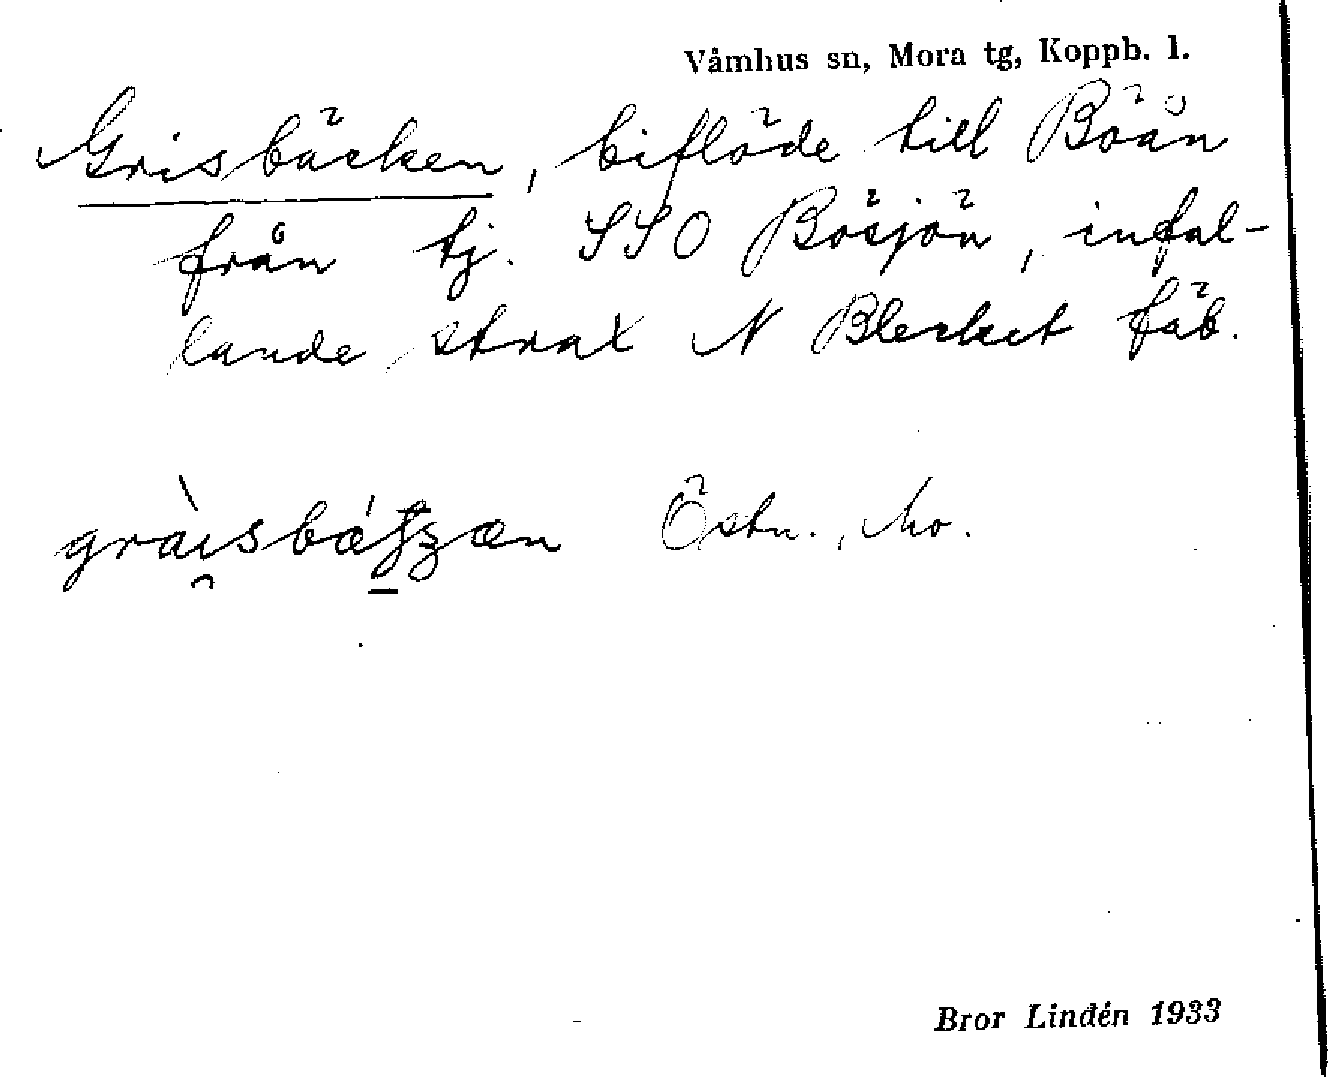 Våmhus sn, Mora tg, Koppb. l.
Grisbäcken, biflöde till Böån
från tj. SSO Bösjön, infal-
lande strax N Blecket fäb.
Östn., Mo.
Bror Lindén 1933